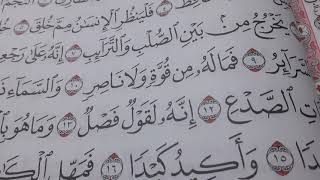 فَلْيَنظُرِ ٱلْإِنسَٰنُ مِمَّ خُلِقَ
يَخْرُجُ مِنۢ بَيْنِ ٱلصُّلْبِ وَٱلتَّرَآئِبِ ٧ إِنَّهُۥ عَلَىٰ رَجْعِ
رَآئِرُ ٩ فَمَا لَهُۥ مِن قُوَّةٍ وَلَا نَاصِرٍ ١٠ وَٱلسَّمَآءِ ذَ
تِ ٱلصَّدْعِ ١٢ إِنَّهُۥ لَقَوْلٌ فَصْلٌ ١٣ وَمَا هُوَ بِٱ
دًا ١٥ وَأَكِيدُ كَيْدًا ١٦ فَمَهِّلِ ٱلْكَ